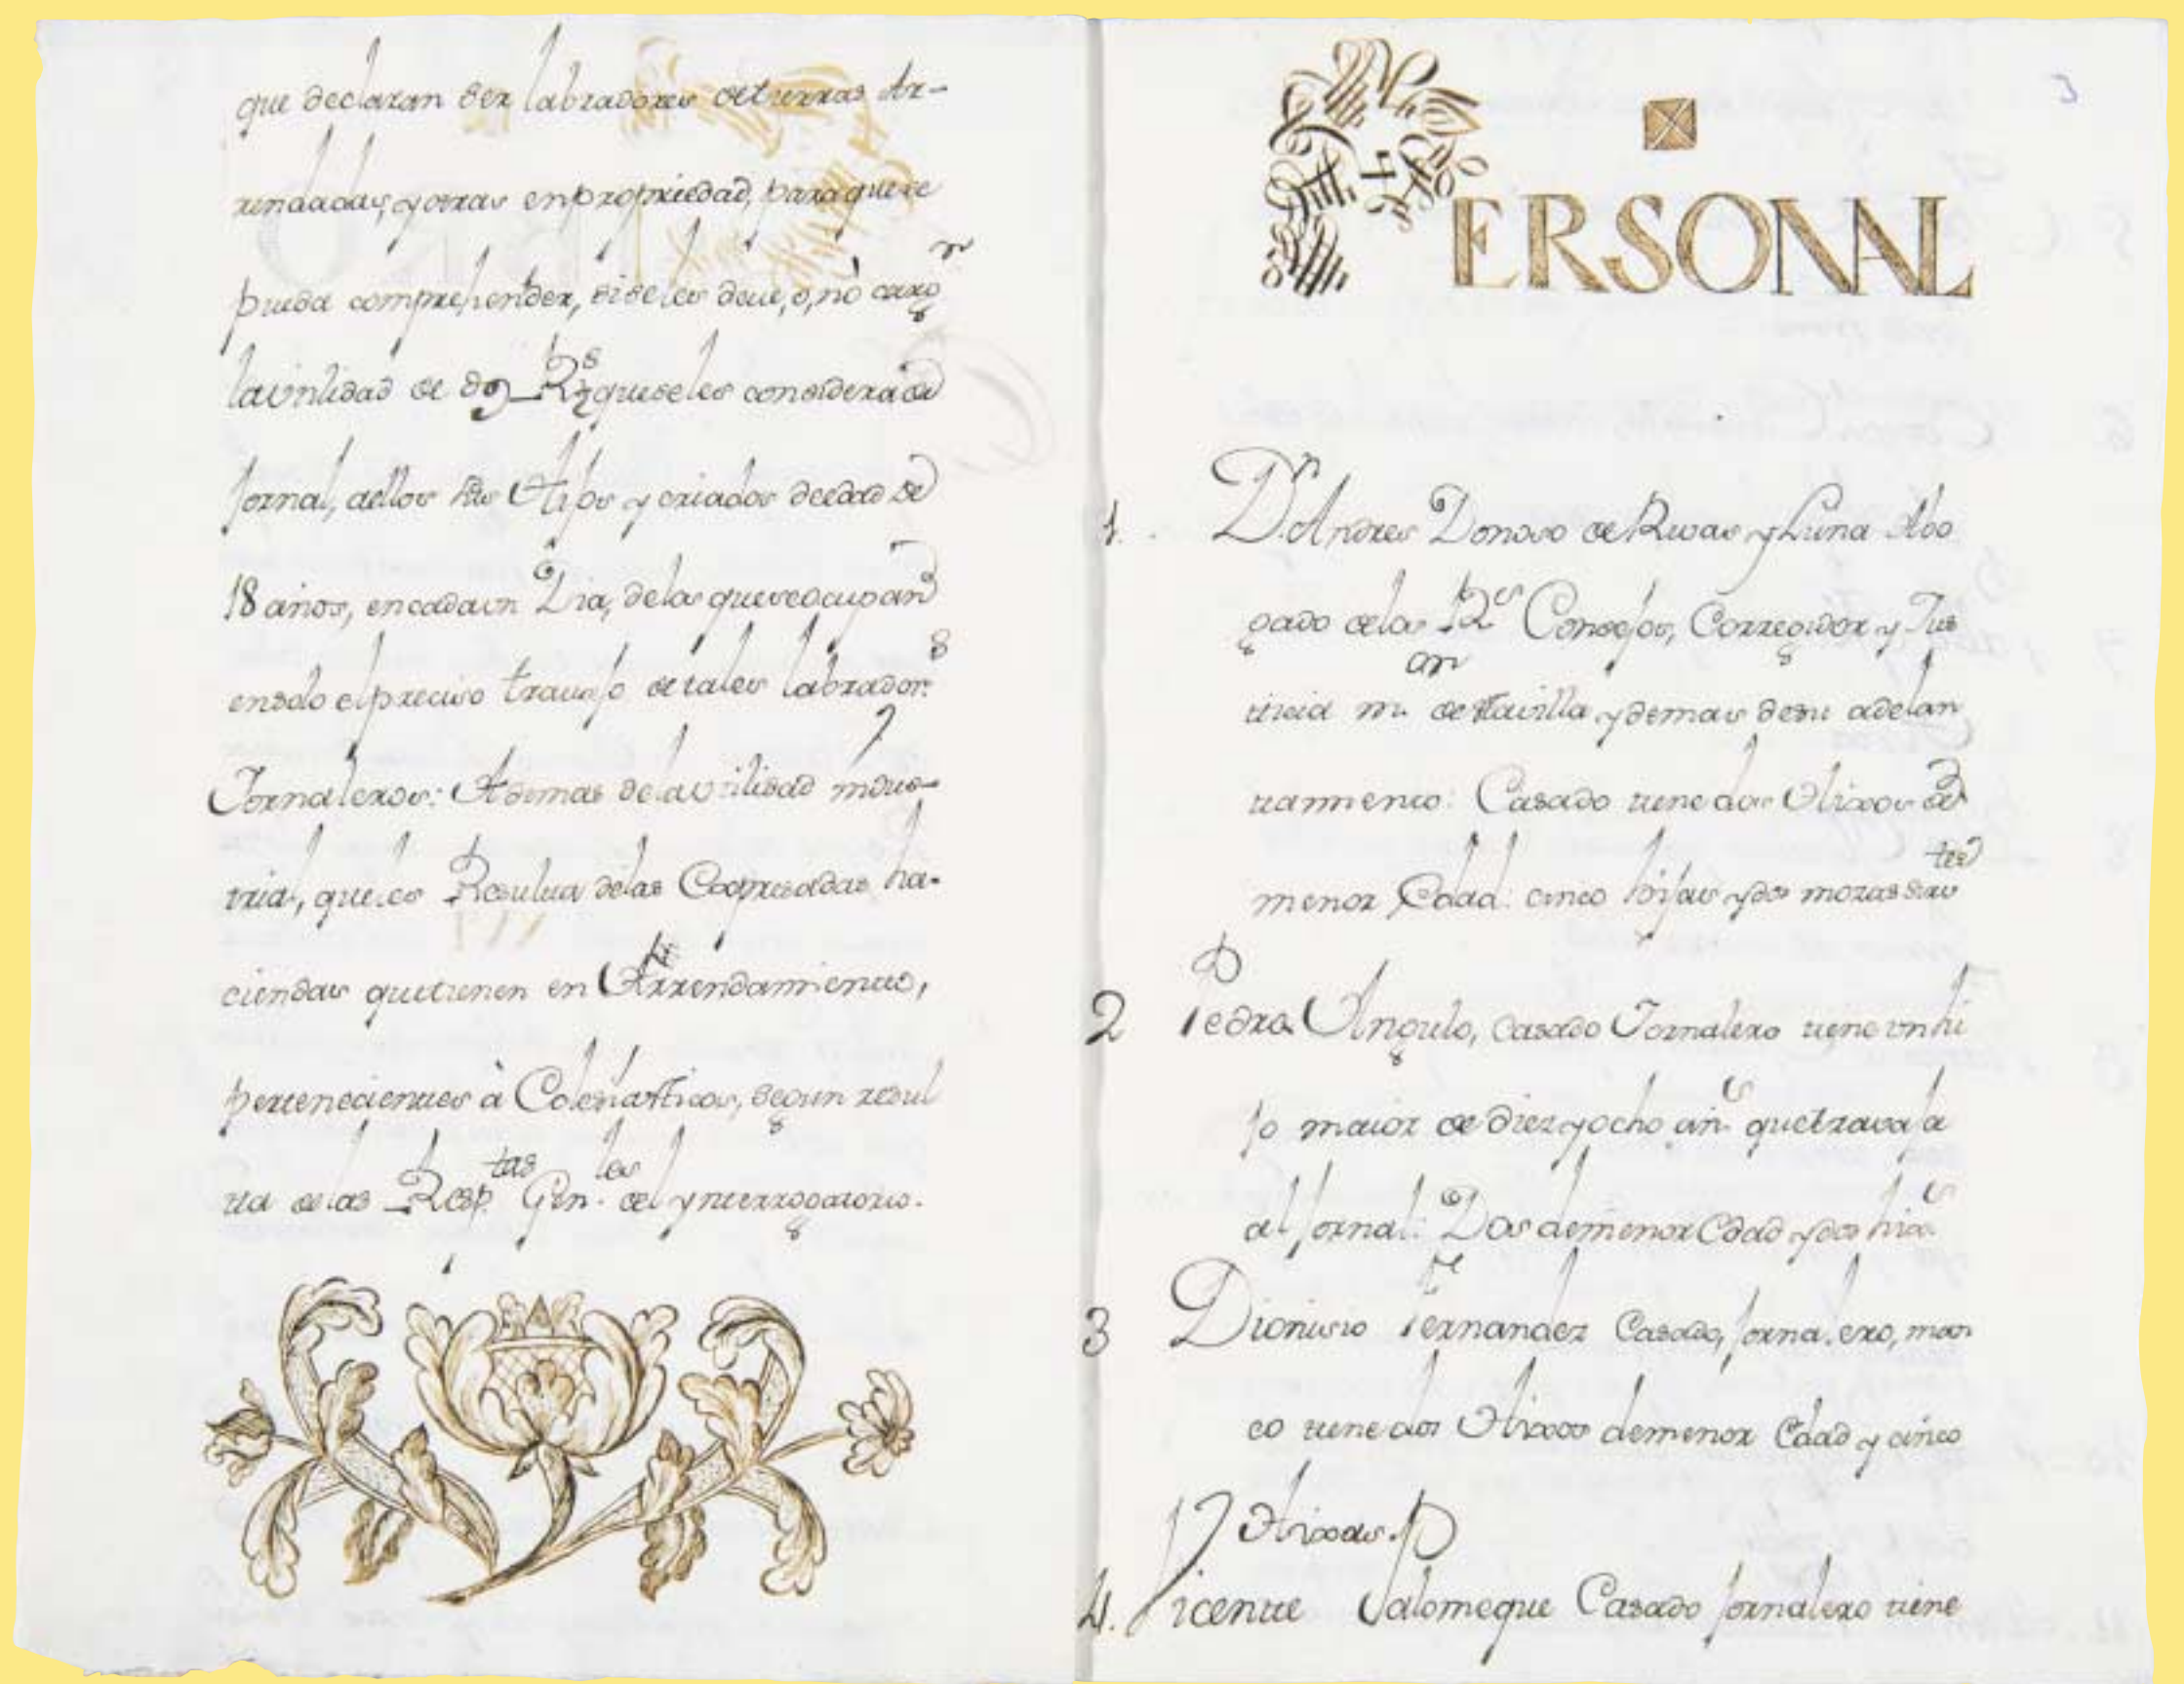 que declaran ser labradores de tierras Ar-
rendadas, y otras en propriedad, para que se
pueda comprehender, si se les deue, o, nò cargr
la vtilidad de 89 Rs que se les considera de
Jornal, a ellos sus Hijos y criados de edad de
18 años, en cada vn Dia, de los que se ocupan
en solo el preciso trauajo de tales labrador.s
Jornaleros: Ademas de la vtilidad indus-
trial, que les Resulta de las Cogpresadas ha-
ciendas que tienen en Arrendamiento,
pertenecientes à Eclesiasticos, segun resul
ta de las Resp.tas Gen.les del ynterrogatorio.
3
PERSONAL
1. Dn Andres Donoso de Riuas y Luna Abo
gado de los Rs Consejos, Corregidor y Jus
ticia m.or de esta villa y demas de su adelan
tamiento: Casado tiene dos Hixos de
menor Edad: cinco hijas y dos mozas sirutes
2 Pedro Angulo, casado Jornalero tiene vn hi
jo maior de diez y ocho añ.s que travaja
al Jornal: Dos de menor Edad y dos hias
3 Dionisio Fernandez Casado, Jornalero, man
co tiene dos Hixos de menor Edad y cinco
Hixas.
4. Vicente Jalomeque Casado Jornalero tiene